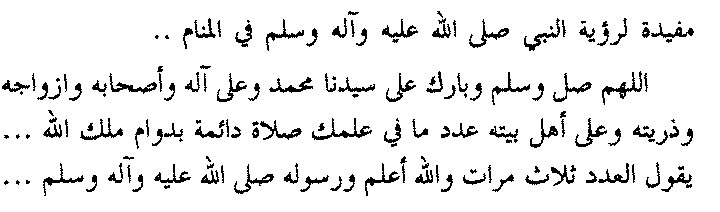 مفيدة لرؤية النبي صلى الله عليه وآله وسلم في المنام ..
اللهم صل وسلم وبارك على سيدنا محمد وعلى آله وأصحابه وازواجه
وذريته وعلى أهل بيته عدد ما في علمك صلاة دائمة بدوام ملك الله ...
يقول العدد ثلاث مرات والله أعلم ورسوله صلى الله عليه وآله وسلم ...